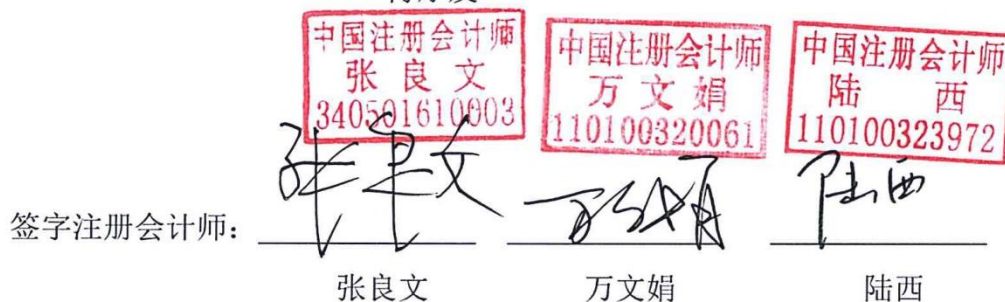 中国注册会计师
张良文
340501610003
中国注册会计师
万文娟
110100320061
中国注册会计师
陆西
110100323972
签字注册会计师：
张良文
万文娟
陆西
张良文
万文娟
陆西